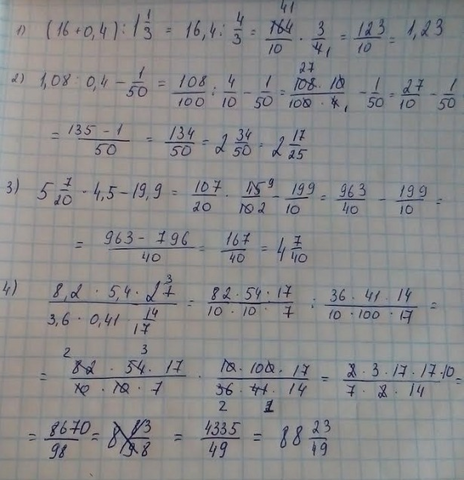 1) (16+0,4) : 1 1/3 = 16,4 : 4/3 = 164/10 · 3/4 = 123/10 = 1,23
41
1
2) 1,08 : 0,4 - 1/50 = 108/100 : 4/10 - 1/50 = 108 · 10/100 · 4 - 1/50 = 27/10 - 1/50
27
1
= 135 - 1/50 = 134/50 = 2 34/50 = 2 17/25
3) 5 7/20 · 4,5 - 19,9 = 107/20 · 45/10 - 199/10 = 963/40 - 199/10 =
9
2
= 963 - 796/40 = 167/40 = 4 7/40
4) 8,2 · 5,4 · 2 3/7 / 3,6 · 0,41 · 14/17 = 82 · 54 · 17/10 · 10 · 7 : 36 · 41 · 14/10 · 100 · 17 =
2 3
= 82 · 54 · 17/10 · 10 · 7 · 10 · 100 · 17/36 · 41 · 14 = 2 · 3 · 17 · 17 · 10/7 · 2 · 14 =
2 1
= 8670/98 = 8 = 4335/49 = 88 23/49